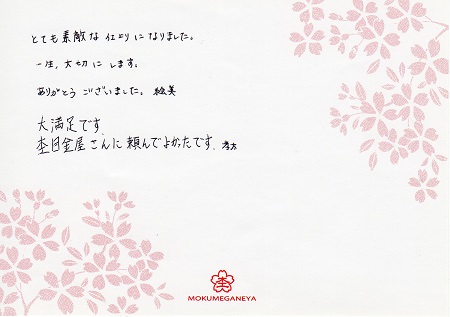 とても素敵な仕上りになりました。
一生、大切にします。
ありがとうございました。 絵美
大満足です。
杢目金屋さんに頼んでよかったです。 孝太
杢
MOKUMEGANEYA